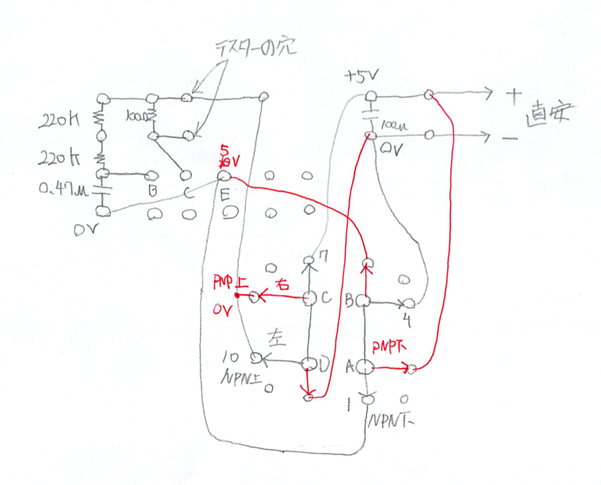 テスターの穴
+5V
+
220k
100Ω
100μ
直安
220k
0V
-
5
0V
0.47μ
B
C
E
0V
7
PNP上
右
C
B
4
0V
左
PNP下
10
D
A
NPN上
1
NPN下